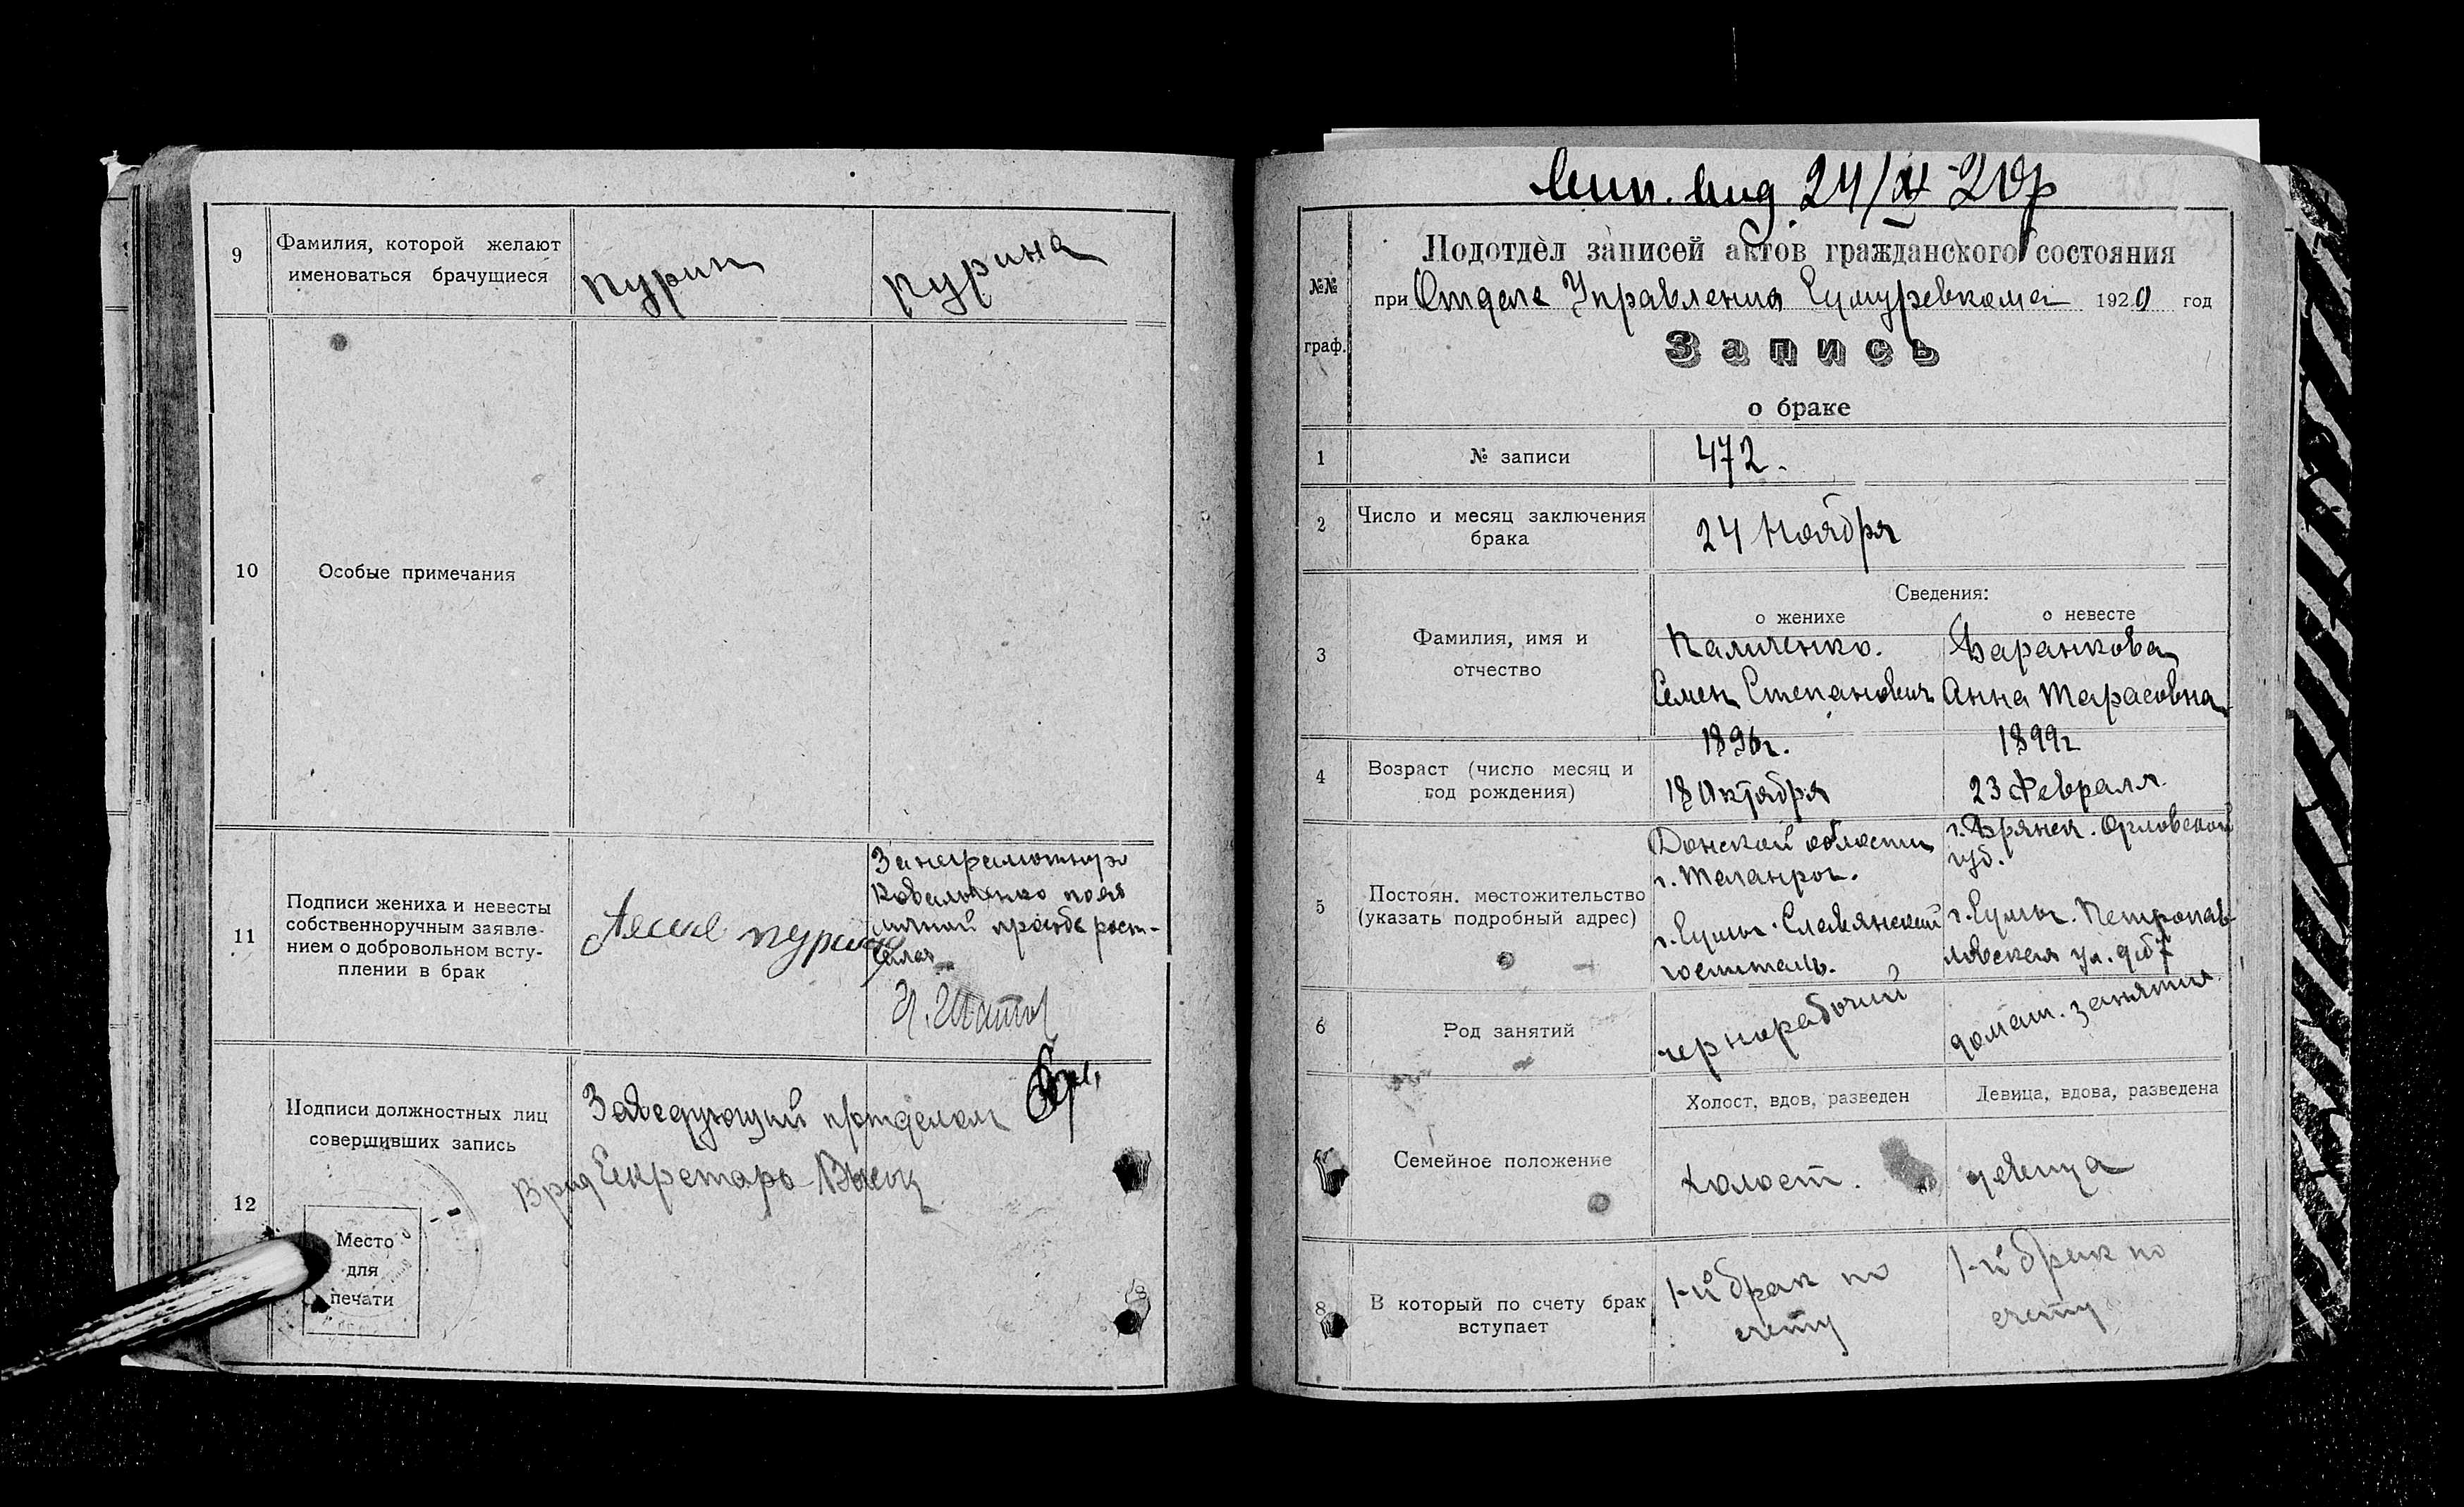 9
Фамилия, которой желают
именоваться брачущиеся
Пурин
Пурина
10
Особые примечания
11
Подписи жениха и невесты
собственноручным заявле-
нием о добровольном всту-
плении в брак
Пурин
За неграмотную
Коваленко по ея
личной просьбе
12
Подписи должностных лиц
совершивших запись
Заведующий п/отделом
Врид Секретарь
Место
для
печати
вид 24/XI 20г
№№
граф.
Подотдел записей актов гражданского состояния
при Отделе Управления Сумуревкома 1920 год
Запись
о браке
1
№ записи
472.
2
Число и месяц заключения
брака
24 Ноября
Сведения:
о женихе
о невесте
3
Фамилия, имя и
отчество
Паличенко.
Семен Степанович
Баранкова
Анна Тарасовна
4
Возраст (число месяц и
год рождения)
1896г.
18 Октября
1899г
23 Февраля
5
Постоян. местожительство
(указать подробный адрес)
Донской области
г. Таганрог.
г. Сумы. Славянский
госпиталь.
г. Брянск. Орловской
губ.
г. Сумы. Петропав-
ловская ул. д
6
Род занятий
чернорабочий
домаш. занятия
Холост, вдов, разведен
Девица, вдова, разведена
Семейное положение
холост.
девица
8
В который по счету брак
вступает
1-й брак по
счету
1-й брак по
счету